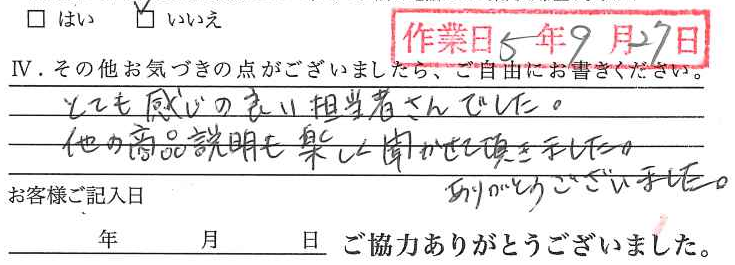 □ はい ☑ いいえ
作業日 5年9月27日
Ⅳ．その他お気づきの点がございましたら、ご自由にお書きください。
とても感じの良い担当者さんでした。
他の商品説明も楽しく聞かせて頂きました。
ありがとうございました。
お客様ご記入日
年 月 日 ご協力ありがとうございました。